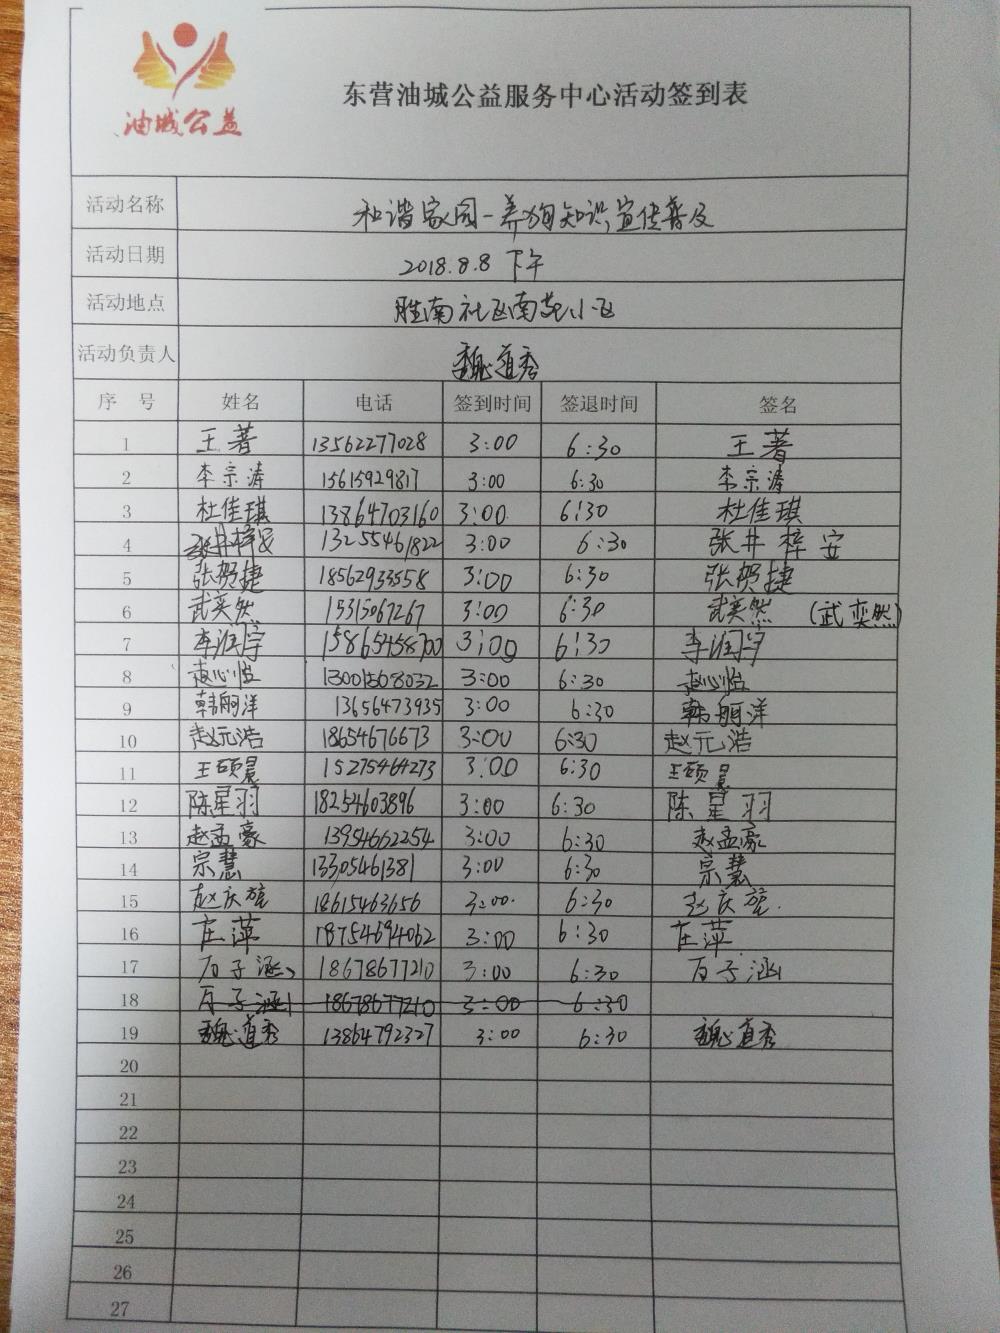 油城公益
东营油城公益服务中心活动签到表
活动名称 和谐家园-养狗知识宣传普及
活动日期 2018.8.8 下午
活动地点 胜南社区南苑小区
活动负责人 魏道秀
序号 姓名 电话 签到时间 签退时间 签名
1 王著 13562277028 3:00 6:30 王著
2 李宗涛 15615929817 3:00 6:30 李宗涛
3 杜佳琪 13864703160 3:00 6:30 杜佳琪
4 张井梓安 13255461822 3:00 6:30 张井梓安
5 张贺捷 18562933558 3:00 6:30 张贺捷
6 武奕然 15315067267 3:00 6:30 武奕然 (武奕然)
7 李润宇 15865458700 3:00 6:30 李润宇
8 赵心怡 13001568032 3:00 6:30 赵心怡
9 韩丽洋 13656473935 3:00 6:30 韩丽洋
10 赵元浩 18654676673 3:00 6:30 赵元浩
11 王硕晨 15275464273 3:00 6:30 王硕晨
12 陈星羽 18254603896 3:00 6:30 陈星羽
13 赵孟豪 13954662254 3:00 6:30 赵孟豪
14 宗慧 13305461381 3:00 6:30 宗慧
15 赵庆 18615463656 3:00 6:30 赵庆
16 庄萍 18754694062 3:00 6:30 庄萍
17 子涵 18678677210 3:00 6:30 子涵
18 子涵 18678677210 3:00 6:30
19 魏道秀 13864792327 3:00 6:30 魏道秀
20
21
22
23
24
25
26
27